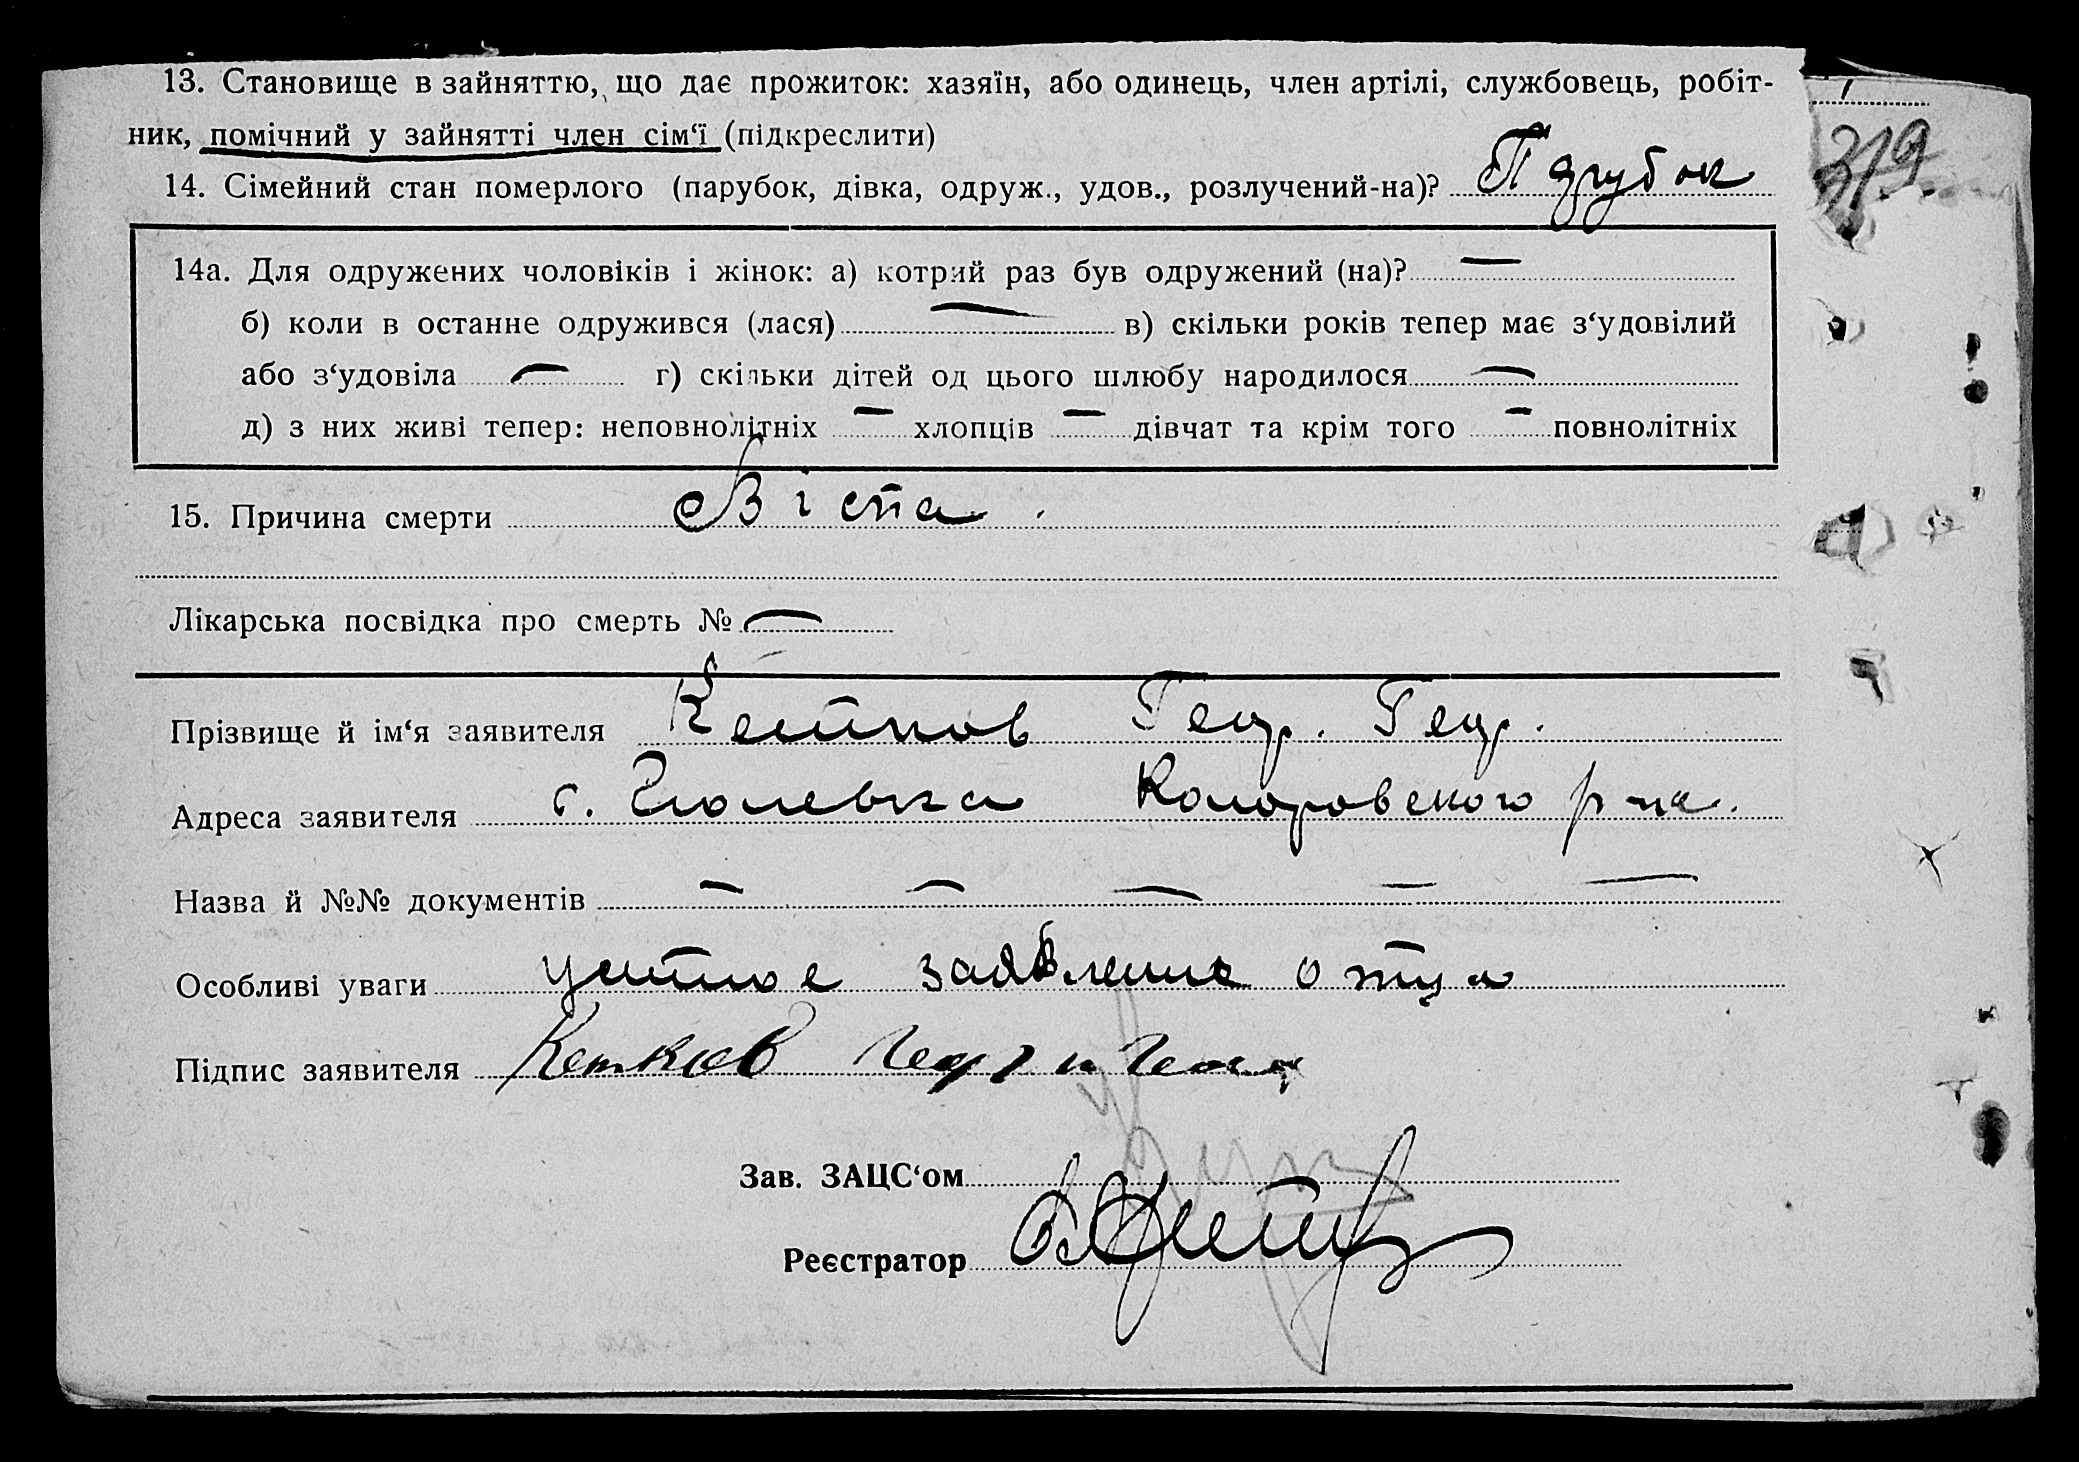 13. Становище в зайняттю, що дає прожиток: хазяїн, або одинець, член артілі, службовець, робіт-
ник, помічний у зайнятті член сім‘ї (підкреслити)
319
14. Сімейний стан померлого (парубок, дівка, одруж., удов., розлучений-на)? Парубок
14а. Для одружених чоловіків і жінок: а) котрий раз був одружений (на)? —
б) коли в останне одружився (лася) — в) скільки років тепер має з‘удовілий
або з‘удовіла — г) скільки дітей од цього шлюбу народилося —
д) з них живі тепер: неповнолітніх — хлопців — дівчат та крім того — повнолітніх
15. Причина смерти Віспа.
Лікарська посвідка про смерть № —
Прізвище й ім‘я заявителя Кетков Геор. Геор.
Адреса заявителя с. Гюлевка Коларовского р-на.
Назва й №№ документів — — — — —
Особливі уваги устное заявление отца
Підпис заявителя Кетков
Зав. ЗАЦС‘ом
Реєстратор